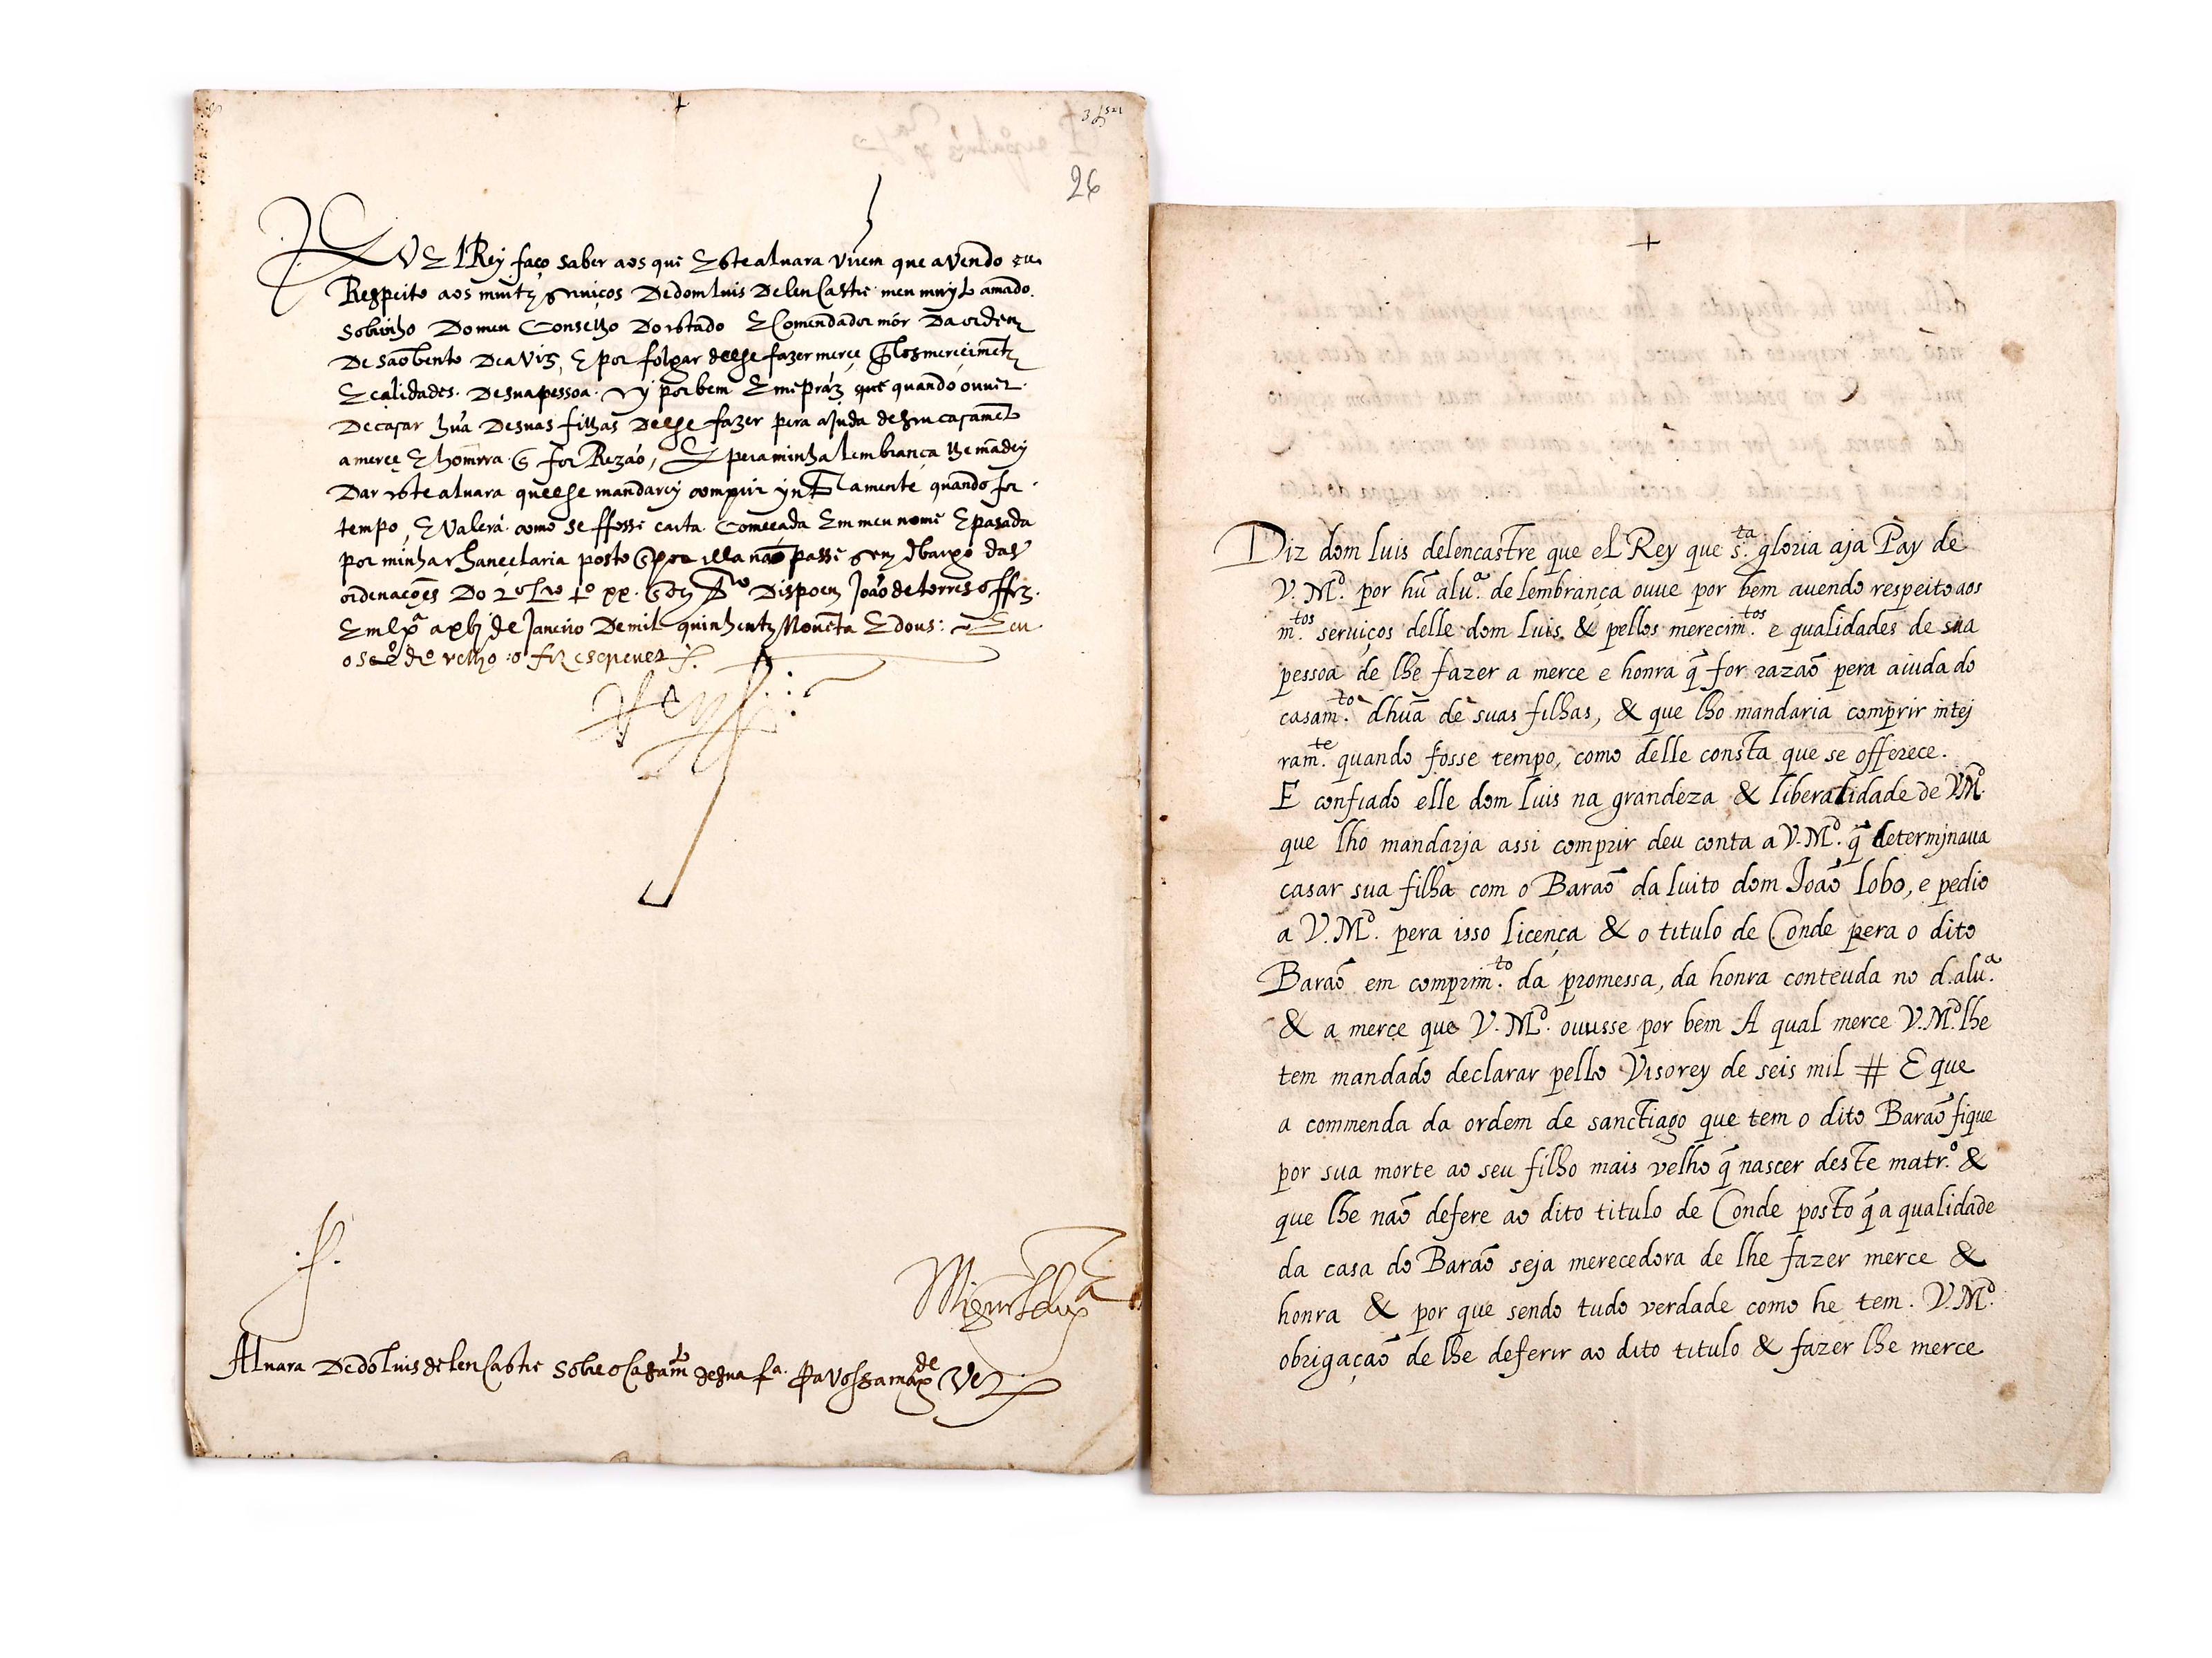 26
EV El Rey faço saber aos que Este aluara virem que avendo eu
Respeito aos muitos serviços De dom luis De lenCastre meu muyto amado
Sobrinho Do meu Conselho Do estado E Comendador mór Da orden
De saõ bento De aviz, E por folgar de lhe fazer merce pelos mereçimetos
E calidades De sua pessoa ey por bem E me práz que quando ouver
De casar hũa De suas filhas De lhe fazer pera ajuda de seu casameto
a merçe E homrra q̃ for Rezaõ, E pera minha lembrança lhe mãdey
Dar este aluara que lhe mandarey comprir ynteiramente quando for
tempo, E Valera como se ffosse carta Começada Em meu nome E pasada
por minha chancelaria posto q̃ por ella naõ passe sem embargo das
ordenações Do 2º Lº tº xx. que o Contrº Dispoem Joaõ de torres o ffez
Em lxª a xbj de Janeiro De mil quinhentos Noventa E dous: E eu
o secº dº velho o fiz escreuer
Rey
Aluara De do luis de lenCastre Sobre o Casamto de sua fª. Pa Vossa magde Ver
Diz dom luis delencastre que el Rey que s.ta gloria aja Pay de
V. M.d por hũ alu.ª de lembrança ouue por bem auendo respeito aos
m.tos seruiços delle dom luis & pellos merecim.tos e qualidades de sua
pessoa de lhe fazer a merce e honra q̃ for razaõ pera aiuda do
casam.to dhuã de suas filhas, & que lho mandaria comprir intej
ram.te quando fosse tempo, como delle consta que se offerece.
E confiado elle dom luis na grandeza & liberalidade de V.M.d
que lho mandarja assi comprir deu conta a V.M.d q̃ determjnaua
casar sua filha com o Baraõ da luito dom Joaõ lobo, e pedio
a V.M.d pera isso licença & o titulo de Conde pera o dito
Baraõ em comprim.to da promessa, da honra conteuda no d. alu.ª
& a merce que V.M.d ouusse por bem A qual merce V.M.d lhe
tem mandado declarar pello Visorey de seis mil # E que
a commenda da ordem de sanctiago que tem o dito Baraõ fique
por sua morte ao seu filho mais velho q̃ nascer deste matr.º &
que lhe naõ defere ao dito titulo de Conde posto q̃ a qualidade
da casa do Baraõ seja merecedora de lhe fazer merce &
honra & por que sendo tudo verdade como he tem. V.M.d
obrigaçaõ de lhe deferir ao dito titulo & fazer lhe merce